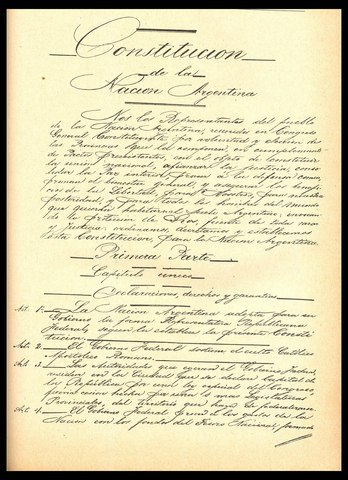 Constitucion
de la
Nacion Argentina
Nos los Representantes del pueblo
de la Nacion Argentina, reunidos en Congreso
General Constituyente por voluntad y eleccion de
las Provincias que la componen, en cumplimiento
de Pactos preexistentes, con el objeto de constituir
la union nacional, afianzar la justicia, conso-
lidar la paz interior, proveer á la defensa comun,
promover el bienestar general, y asegurar los bene-
ficios de la libertad, para nosotros, para nuestra
posteridad, y para todos los hombres del mundo
que quieran habitar el suelo Argentino; invocan-
do la proteccion de Dios, fuente de toda razon
y justicia: ordenamos, decretamos y establecemos
esta Constitucion, para la Nacion Argentina.
Primera Parte
Capítulo único
Declaraciones, derechos y garantias
Art. 1. La Nacion Argentina adopta para su
Gobierno la forma Representativa Republicana
Federal, segun la establece la presente Consti-
tucion.
Art. 2. El Gobierno Federal sostiene el culto Católico
Apostólico Romano.
Art. 3. Las Autoridades que ejercen el Gobierno Federal,
residen en la Ciudad que se declare Capital de
la República por una ley especial del Congreso,
previa cesion hecha por una ó mas Legislaturas
Provinciales, del territorio que haya de federalizarse.
Art. 4. El Gobierno Federal provee á los gastos de la
Nacion con los fondos del Tesoro Nacional, formado